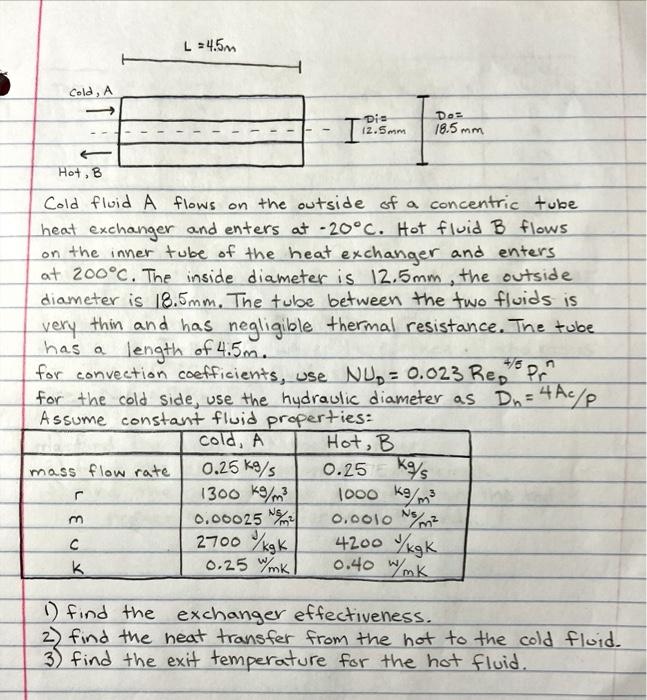 L = 4.5m
Cold, A
Di=
12.5mm
Do=
18.5mm
Hot, B
Cold fluid A flows on the outside of a concentric tube
heat exchanger and enters at -20°C. Hot fluid B flows
on the inner tube of the heat exchanger and enters
at 200°C. The inside diameter is 12.5mm, the outside
diameter is 18.5mm. The tube between the two fluids is
very thin and has negligible thermal resistance. The tube
has a length of 4.5m.
for convection coefficients, use NU_D = 0.023 Re_D^4/5 Pr^n
for the cold side, use the hydraulic diameter as D_h = 4Ac/p
Assume constant fluid properties:
Cold, A Hot, B
mass flow rate 0.25 kg/s 0.25 kg/s
r 1300 kg/m³ 1000 kg/m³
m 0.00025 Ns/m² 0.0010 Ns/m²
c 2700 J/kgK 4200 J/kgK
k 0.25 W/mK 0.40 W/mK
1) find the exchanger effectiveness.
2) find the heat transfer from the hot to the cold fluid.
3) find the exit temperature for the hot fluid.